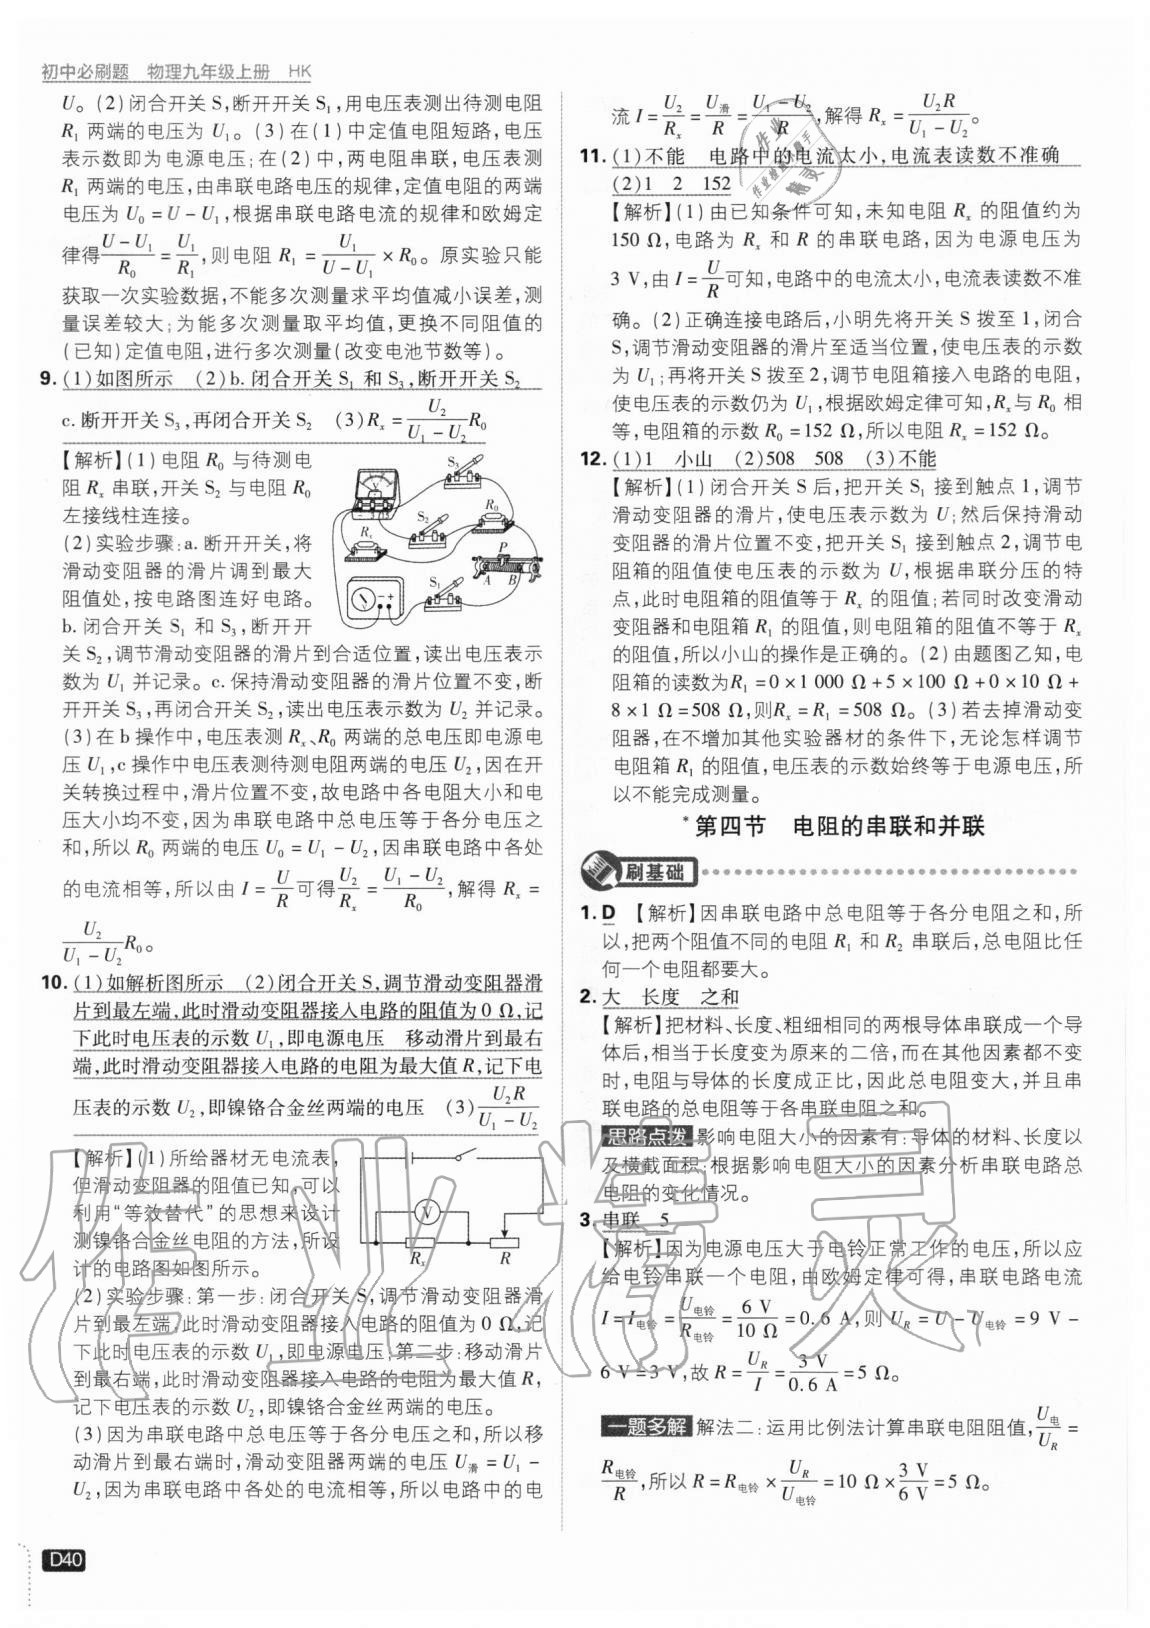 初中必刷题　物理九年级上册　HK
U。(2)闭合开关 S,断开开关 S₁,用电压表测出待测电阻
R₁ 两端的电压为 U₁。(3)在(1)中定值电阻短路,电压
表示数即为电源电压;在(2)中,两电阻串联,电压表测
R₁ 两端的电压,由串联电路电压的规律,定值电阻的两端
电压为 U₀ = U - U₁,根据串联电路电流的规律和欧姆定
律得(U - U₁)/R₀ = U₁/R₁,则电阻 R₁ = U₁/(U - U₁) × R₀。原实验只能
获取一次实验数据,不能多次测量求平均值减小误差,测
量误差较大;为能多次测量取平均值,更换不同阻值的
(已知)定值电阻,进行多次测量(改变电池节数等)。
9. (1)如图所示　(2)b. 闭合开关 S₁ 和 S₃,断开开关 S₂
c. 断开开关 S₃,再闭合开关 S₂　(3)Rₓ = U₂/(U₁ - U₂) R₀
【解析】(1)电阻 R₀ 与待测电
阻 Rₓ 串联,开关 S₂ 与电阻 R₀
左接线柱连接。
(2)实验步骤:a. 断开开关,将
滑动变阻器的滑片调到最大
阻值处,按电路图连好电路。
b. 闭合开关 S₁ 和 S₃,断开开
S₃
R₀
S₂
Rₓ
P
A B
S₁
- +
关 S₂,调节滑动变阻器的滑片到合适位置,读出电压表示
数为 U₁ 并记录。c. 保持滑动变阻器的滑片位置不变,断
开开关 S₃,再闭合开关 S₂,读出电压表示数为 U₂ 并记录。
(3)在 b 操作中,电压表测 Rₓ、R₀ 两端的总电压即电源电
压 U₁,c 操作中电压表测待测电阻两端的电压 U₂,因在开
关转换过程中,滑片位置不变,故电路中各电阻大小和电
压大小均不变,因为串联电路中总电压等于各分电压之
和,所以 R₀ 两端的电压 U₀ = U₁ - U₂,因串联电路中各处
的电流相等,所以由 I = U/R 可得 U₂/Rₓ = (U₁ - U₂)/R₀,解得 Rₓ =
U₂/(U₁ - U₂) R₀。
10. (1)如解析图所示　(2)闭合开关 S,调节滑动变阻器滑
片到最左端,此时滑动变阻器接入电路的阻值为 0 Ω,记
下此时电压表的示数 U₁,即电源电压　移动滑片到最右
端,此时滑动变阻器接入电路的电阻为最大值 R,记下电
压表的示数 U₂,即镍铬合金丝两端的电压　(3)U₂R/(U₁ - U₂)
【解析】(1)所给器材无电流表,
但滑动变阻器的阻值已知,可以
利用“等效替代”的思想来设计
测镍铬合金丝电阻的方法,所设
计的电路图如图所示。
V
Rₓ　R
(2)实验步骤:第一步:闭合开关 S,调节滑动变阻器滑
片到最左端,此时滑动变阻器接入电路的阻值为 0 Ω,记
下此时电压表的示数 U₁,即电源电压;第二步:移动滑片
到最右端,此时滑动变阻器接入电路的电阻为最大值 R,
记下电压表的示数 U₂,即镍铬合金丝两端的电压。
(3)因为串联电路中总电压等于各部分电压之和,所以移
动滑片到最右端时,滑动变阻器两端的电压 U滑 = U₁ -
U₂,因为串联电路中各处的电流相等,所以电路中的电
流 I = U₂/Rₓ = U滑/R = (U₁ - U₂)/R,解得 Rₓ = U₂R/(U₁ - U₂)。
11. (1)不能　电路中的电流太小,电流表读数不准确
(2)1　2　152
【解析】(1)由已知条件可知,未知电阻 Rₓ 的阻值约为
150 Ω,电路为 Rₓ 和 R 的串联电路,因为电源电压为
3 V,由 I = U/R 可知,电路中的电流太小,电流表读数不准
确。(2)正确连接电路后,小明先将开关 S 拨至 1,闭合
S,调节滑动变阻器的滑片至适当位置,使电压表的示数
为 U₁;再将开关 S 拨至 2,调节电阻箱接入电路的电阻,
使电压表的示数仍为 U₁,根据欧姆定律可知,Rₓ与 R₀ 相
等,电阻箱的示数 R₀ = 152 Ω,所以电阻 Rₓ = 152 Ω。
12. (1)1　小山　(2)508　508　(3)不能
【解析】(1)闭合开关 S 后,把开关 S₁ 接到触点 1,调节
滑动变阻器的滑片,使电压表示数为 U;然后保持滑动
变阻器的滑片位置不变,把开关 S₁ 接到触点 2,调节电
阻箱的阻值使电压表的示数为 U,根据串联分压的特
点,此时电阻箱的阻值等于 Rₓ 的阻值;若同时改变滑动
变阻器和电阻箱 R₁ 的阻值,则电阻箱的阻值不等于 Rₓ
的阻值,所以小山的操作是正确的。(2)由题图乙知,电
阻箱的读数为R₁ = 0 × 1 000 Ω + 5 × 100 Ω + 0 × 10 Ω +
8 × 1 Ω = 508 Ω,则Rₓ = R₁ = 508 Ω。(3)若去掉滑动变
阻器,在不增加其他实验器材的条件下,无论怎样调节
电阻箱 R₁ 的阻值,电压表的示数始终等于电源电压,所
以不能完成测量。
*第四节　电阻的串联和并联
刷基础
1. D　【解析】因串联电路中总电阻等于各分电阻之和,所
以,把两个阻值不同的电阻 R₁ 和 R₂ 串联后,总电阻比任
何一个电阻都要大。
2. 大　长度　之和
【解析】把材料、长度、粗细相同的两根导体串联成一个导
体后,相当于长度变为原来的二倍,而在其他因素都不变
时,电阻与导体的长度成正比,因此总电阻变大,并且串
联电路的总电阻等于各串联电阻之和。
思路点拨 影响电阻大小的因素有:导体的材料、长度以
及横截面积;根据影响电阻大小的因素分析串联电路总
电阻的变化情况。
3. 串联　5
【解析】因为电源电压大于电铃正常工作的电压,所以应
给电铃串联一个电阻,由欧姆定律可得,串联电路电流
I = I电铃 = U电铃/R电铃 = 6 V/10 Ω = 0.6 A,则 U_R = U - U电铃 = 9 V -
6 V = 3 V,故 R = U_R/I = 3 V/0.6 A = 5 Ω。
一题多解 解法二:运用比例法计算串联电阻阻值,U电/U_R =
R电铃/R,所以 R = R电铃 × U_R/U电铃 = 10 Ω × 3 V/6 V = 5 Ω。
D40
作业精灵